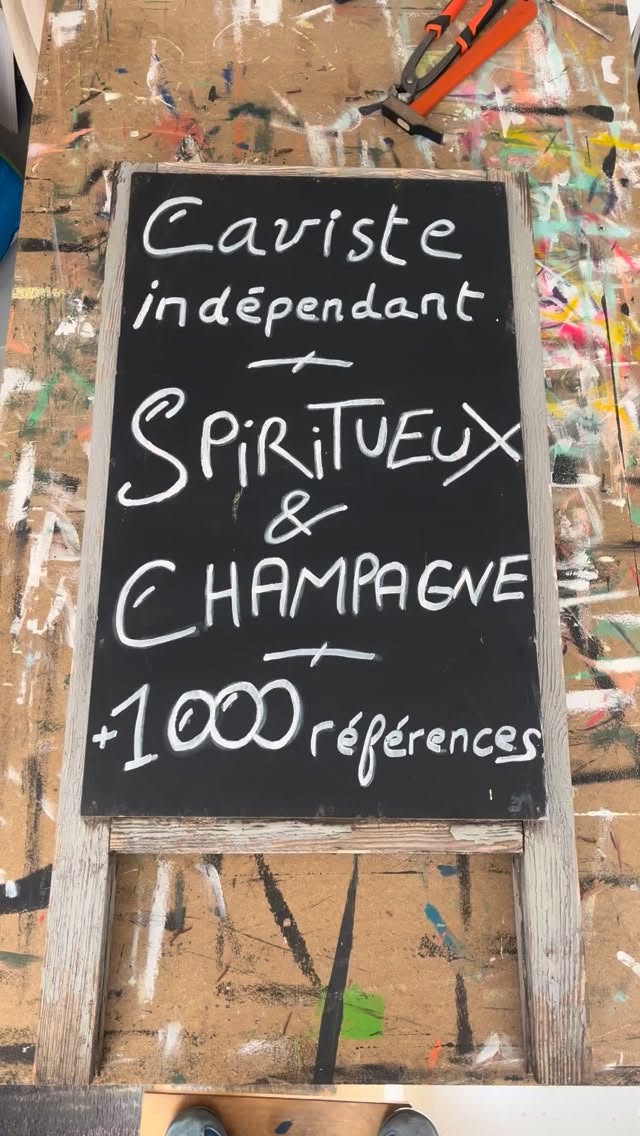 Caviste
indépendant
SPiRiTUEUX
&
CHAMPAGNE
+1000 références